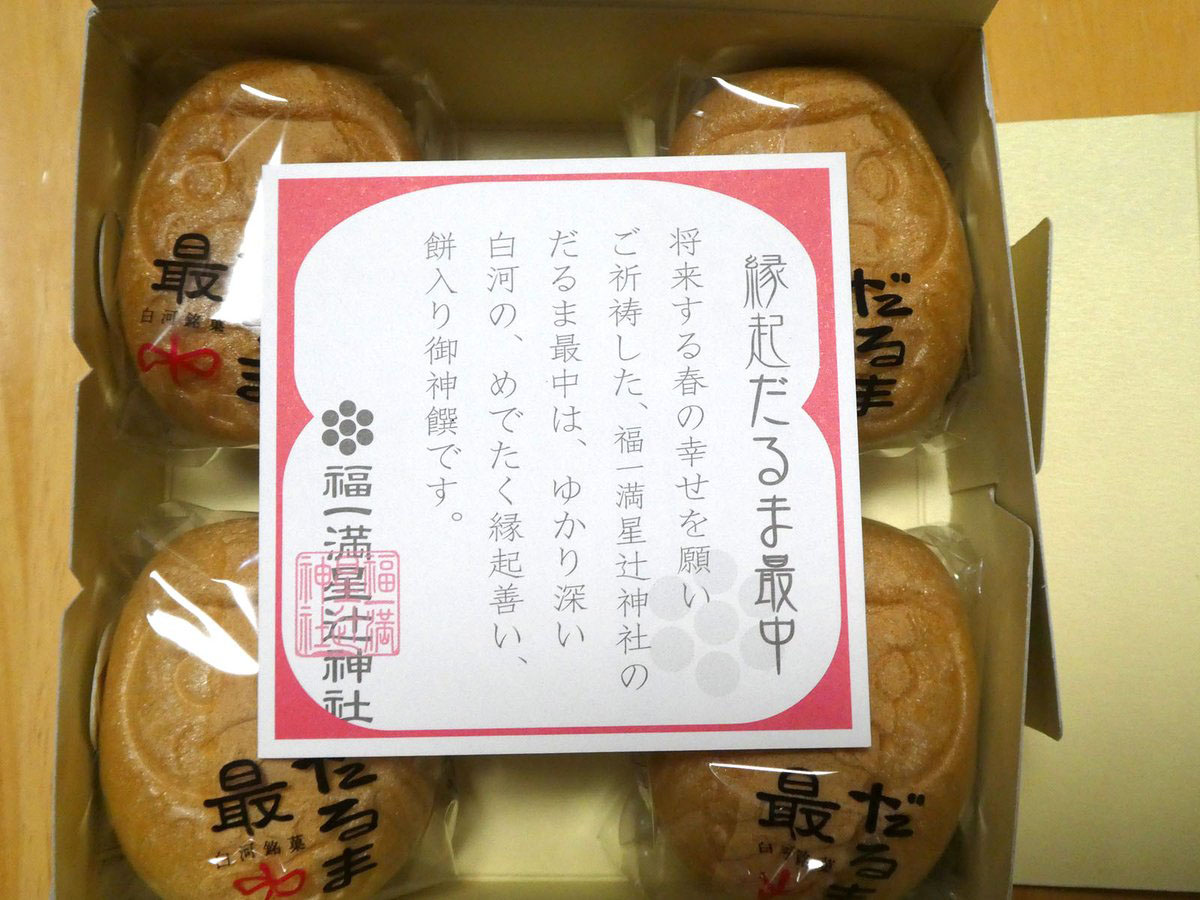 縁起だるま最中
将来する春の幸せを願い
ご祈祷した、福一満星辻神社の
だるま最中は、ゆかり深い
白河の、めでたく縁起善い、
餅入り御神饌です。
福一満星辻神社
福一満
星辻
神社
だるま
最
白河銘菓
ま
だるま
最
白河銘菓
だるま
最
白河銘菓